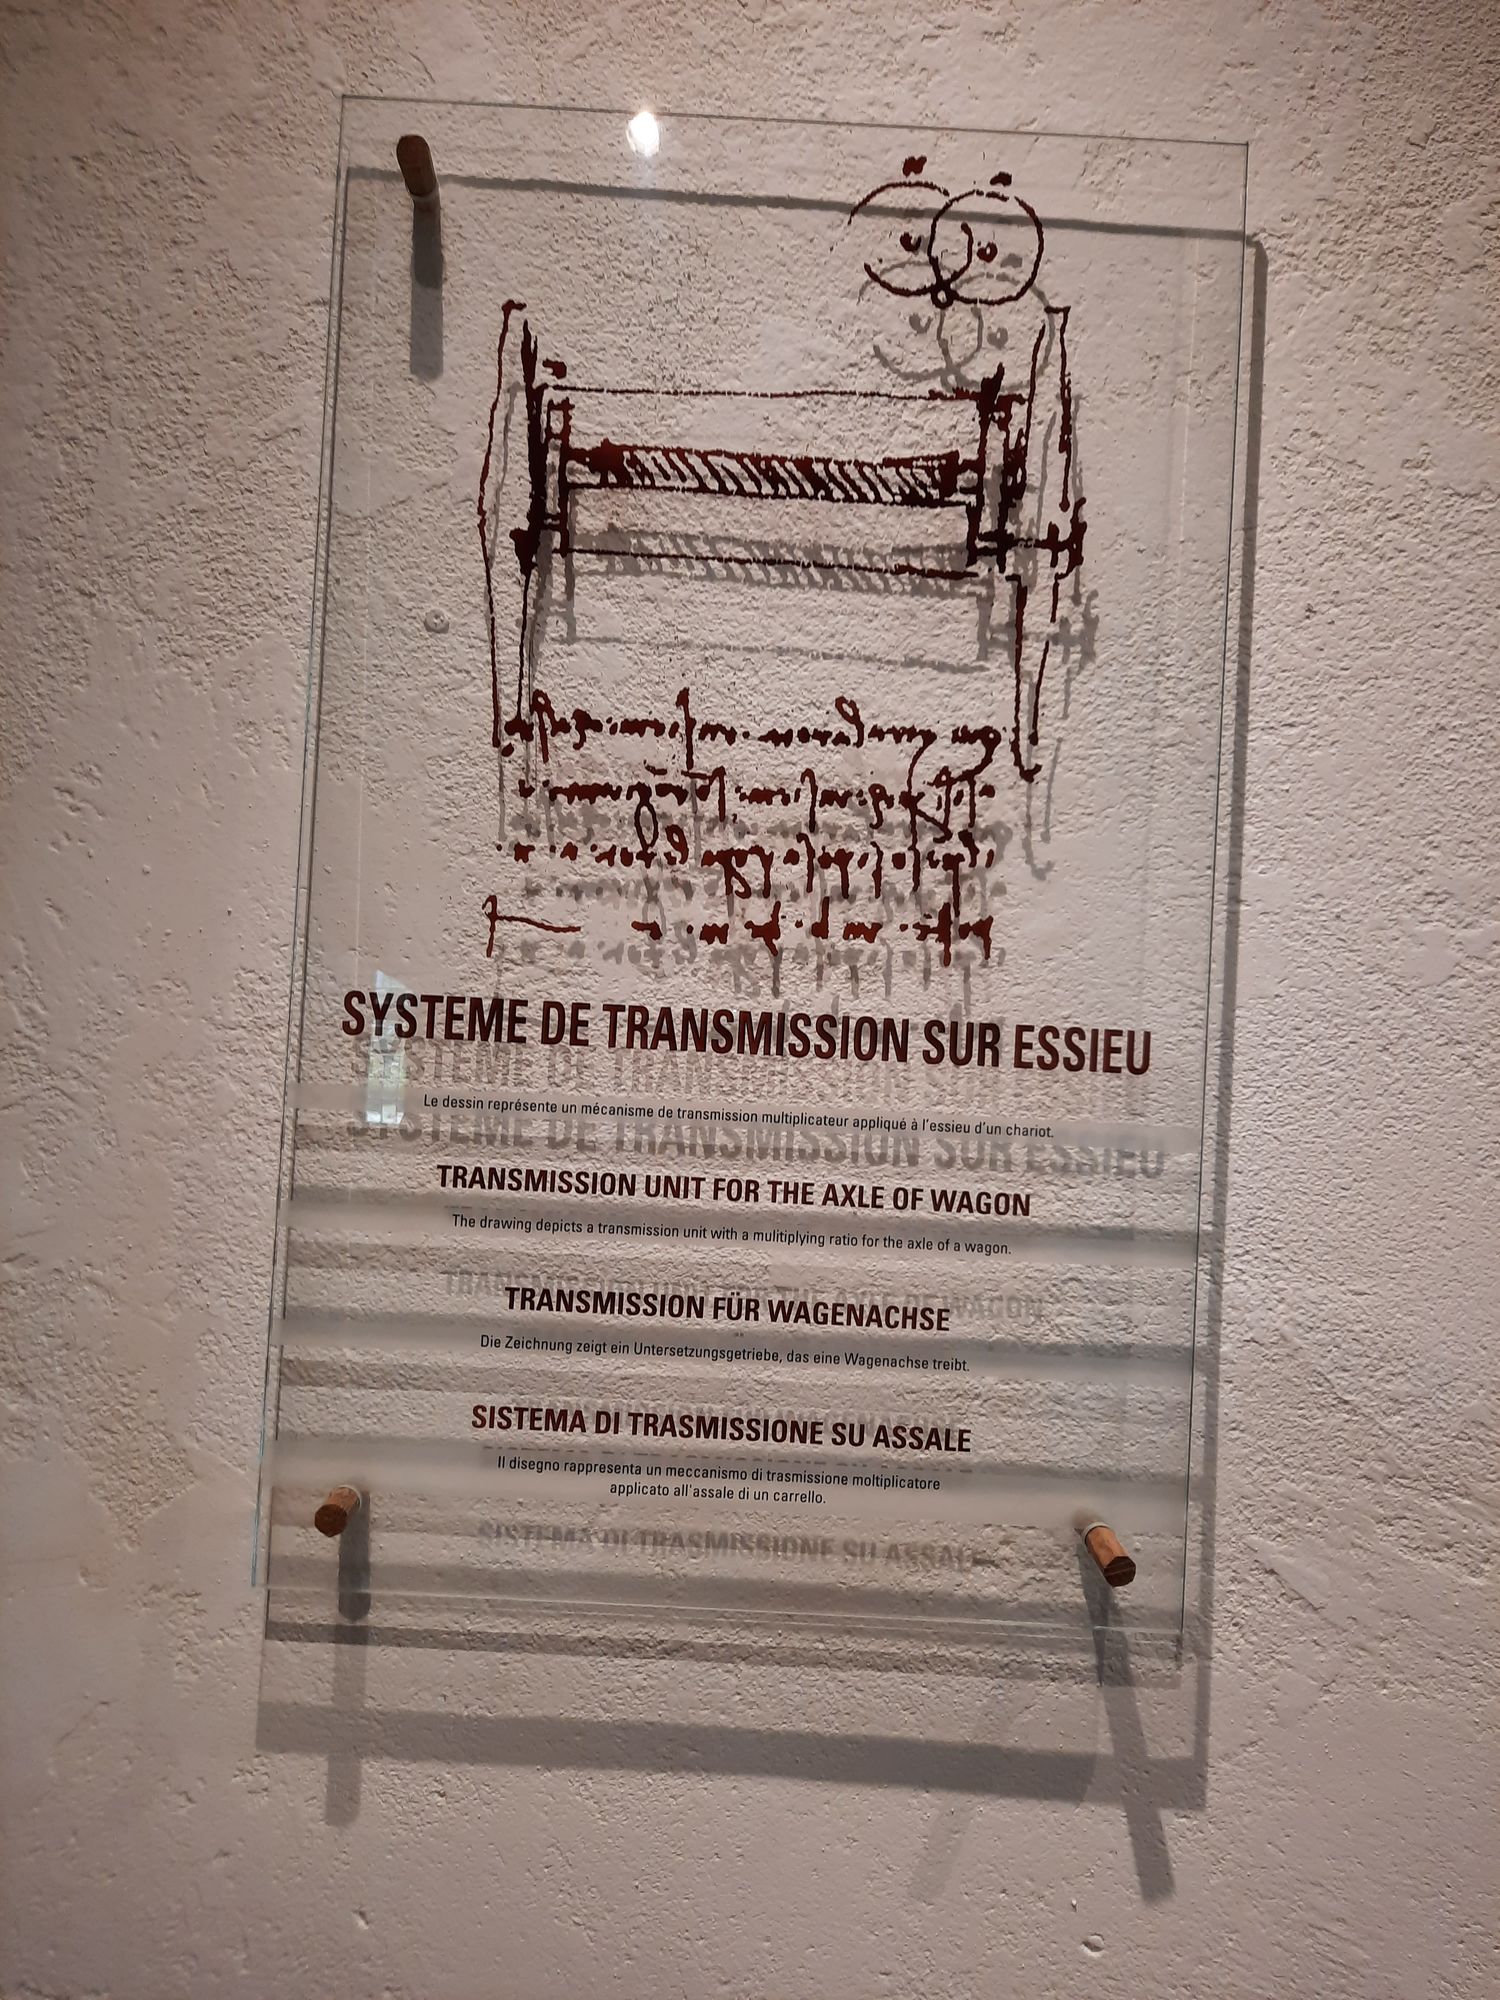 SYSTEME DE TRANSMISSION SUR ESSIEU
Le dessin représente un mécanisme de transmission multiplicateur appliqué à l'essieu d'un chariot.
TRANSMISSION UNIT FOR THE AXLE OF WAGON
The drawing depicts a transmission unit with a mulitiplying ratio for the axle of a wagon.
TRANSMISSION FÜR WAGENACHSE
Die Zeichnung zeigt ein Untersetzungsgetriebe, das eine Wagenachse treibt.
SISTEMA DI TRASMISSIONE SU ASSALE
Il disegno rappresenta un meccanismo di trasmissione moltiplicatore
applicato all'assale di un carrello.